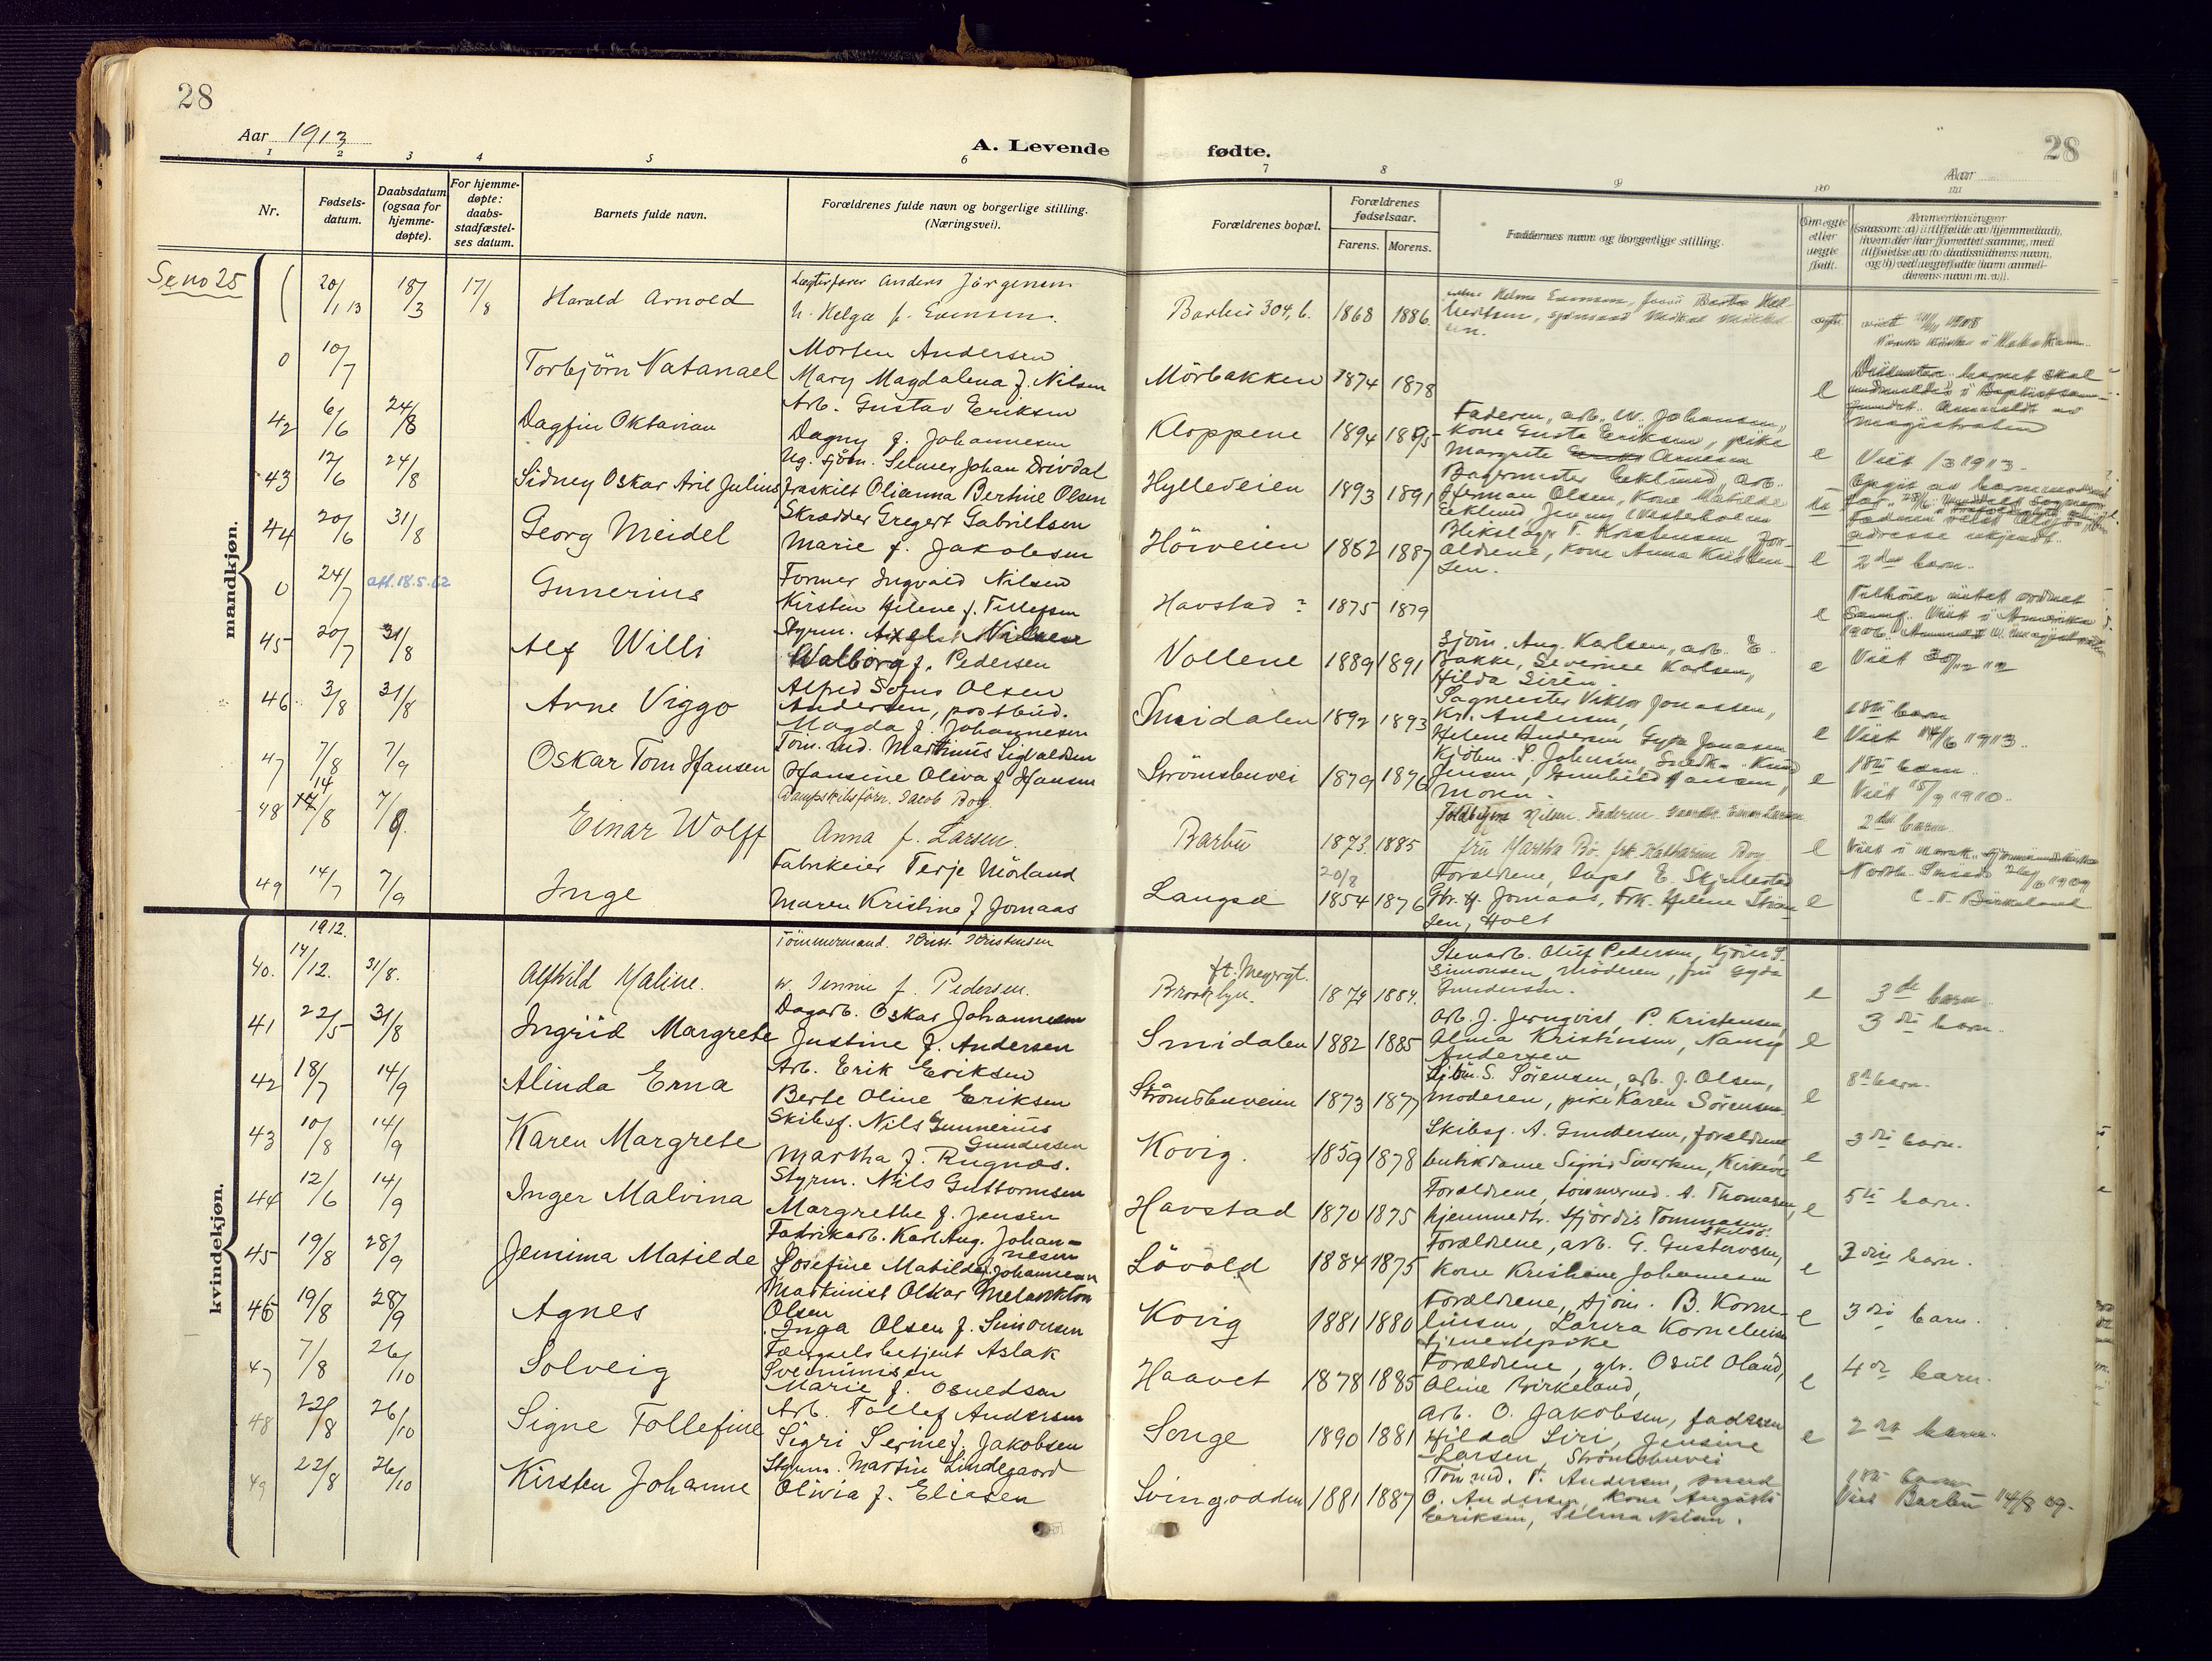 28
Aar 1913
A. Levende
fødte.
28
Aar
1 2 3 4 5 6 7 8 9 10 11
Nr.
Fødsels-
datum.
Daabsdatum
(ogsaa for
hjemme-
døpte).
For hjemme-
døpte:
daabs-
stadfæstel-
ses datum.
Barnets fulde navn.
Forældrenes fulde navn og borgerlige stilling.
(Næringsvei).
Forældrenes bopæl.
Forældrenes
fødselsaar.
Farens. Morens.
Faddernes navn og borgerlige stilling.
Om egte
eller
uegte
født.
Anmerkninger
mandkjøn.
Se no 25
20/1 13 18/3 17/8 Harald Arnold
Anders Jørgensen
h. Helga f. Evensen.
Barbu 304, b. 1868 1886.
0 10/7 Torbjörn Natanael
Morten Andersen
Mary Magdalena f. Nilsen
Mörbakken 1874 1878
e
barnet skal
Anmeldt av
magistraten
42 6/6 24/8 Dagfin Oktavian
Arb. Gustav Eriksen
Dagny f. Johannesen
Kloppene 1894 1895
Faderen, arb. W. Johansen,
kone Gusta Eriksen, pike
Margrete Arnesen
e Viet /3 1913.
43 12/6 24/8 Sidney Oskar Aril Julius
Ug. sjöm. Selmer Johan Drivdal
fraskilt Olianna Bertine Olsen
Hylleveien 1893 1891
Bagermester Eeklund, arb.
Herman Olsen, Kone Matilde
Eeklund Jenny Westerholm
adresse ukjendt.
44 20/6 31/8 Georg Meidel
Skrædder Gregert Gabrielsen
Marie f. Jakobsen
Hörveien 1862 1887
Blikslagr T. Kristensen For-
ældrene, kone Anna Kristen-
sen.
e 2det barn.
0 24/7 att. 18.5.62 Gunerius
Former Ingvald Nilsen
Kirsten Helene f. Tellefsen
Havstad ? 1875 1879
e
Viet i Amerika
1906.
45 20/7 31/8 Alf Willi
Styrm. Axel Nilsen
Walborg f. Pedersen
Vollene 1889 1891
Sjöm. Aug. Karlsen, arb. E.
Bakke, Severnee Karlsen,
Hilda Siren
e Viet 30/12 12
46. 3/8 31/8 Arne Viggo
Alfred Sofus Olsen
Andersen, postbud.
Magda f. Johannesen
Smidalen 1892 1893
Sagmester Viktor Jonassen,
Kr. Andersen,
Helene Andersen Gyda Jonassen
e
1ste barn
Viet 14/6 1913.
47 7/8 7/9 Oskar Tom Hansen
Töm. md. Martinus Sigvaldsen
Hansine Oliva f Hansen
Strömsbuvei 1879 1876
Kjöbm. S. Johnsen, Snedk. Knud
Jensen, Gunhild Hansen,
Moren.
e
1ste barn.
Viet 15/9 1910.
48 14/8 7/9 Einar Wolff
Dampskibsförer. Jacob Boy.
Anna f. Larsen.
Barbu 1873. 1885
Nilsen. Faderen. Einar Larsen
fru Martha Bö. frk. Katharine Boy.
e
2det barn
49 14/7 7/9 Inge
Fabrikeier Terje Mörland
Maren Kristine f Jomaas
Langsæ 20/8 1854 1876
Forældrene, Capt E. Skjellestad
Gbr. H. Jomaas, Frk. Helene
sen, Holt
e
C. F. Birkeland
kvindekjøn.
1912.
40. 14/12. 31/8. Alfhild Maline.
Tömmermand. Krist. Kristensen
w. Jennie f. Pedersen.
Brooklyn. 1879 1884.
Stenarb. Oluf Pedersen, Kjöm S.
Simonsen, möderen, fru Gyda
Gundersen.
e 3de barn
41 22/5 31/8 Ingrid Margrete
Dagarb. Oskar Johannesen
Justine f. Andersen
Smidalen 1882 1885
Arb. J. Jernqvist, P. Kristensen,
Alma Kristensen, Nanny
Andersen
e 3die barn.
42 18/7 14/9 Alinda Erna
Arb. Erik Eriksen
Berte Oline Eriksen
Strömsbuveien 1873 1877
Sjöm. S. Sörensen, arb. J. Olsen,
Moderen, pike Karen Sörensen.
e 8de barn.
43 10/8 14/9 Karen Margrete
Skibsf. Nils Gunnerius
Gundersen
Martha f. Rugnæs.
Kovig. 1859 1878
Skibsf. A. Gundersen, forældrene,
butikdame Sigrid Sivertsen, Kirkevei
e 3die barn.
44 12/6 14/9 Inger Malvina
Styrm. Nils Guttormsen
Margrethe f. Jensen
Havstad 1870 1875
Forældrene, tömmermd. A. Thomasen,
hjemmedtr. Hjördis Tommasen.
Skilsö.
e 5te barn.
45 19/8 28/9 Jemima Matilde
Fabrikarb. Karl Aug. Johan-
nesen
Josefine Matilde f. Johannesen
Lövold 1884 1875
Forældrene, arb. G. Gustavsen,
Kone Kristiane Johannesen
e 3die barn.
46 19/8 28/9 Agnes
Maskinist Olkar Melankton
Olsen
Inga Olsen f. Simonsen
Kovig 1881 1880
Forældrene, sjöm. B. Korne-
liusen, Laura Korneliusen
tjenestepike
e 3die barn.
47 7/8 26/10 Solveig
Fængselsbetjent Aslak
Svenumsen
Marie f. Osuldsen
Haavet 1878 1885
Forældrene, gbr. Osul Oland,
Oline Birkeland,
e 4de barn.
48 22/8 26/10 Signe Tollefine
Arb. Tollef Andersen
Sigri Serine f. Jakobsen
Songe 1890 1881
Arb. O. Jakobsen, faderen
Hilda Siri, Jensine
Larsen, Strömsbuvei
e 2det barn.
49 22/8 26/10 Kirsten Johanne
Styrm. Martin Lindegaard
Olivia f. Eliasen
Svingodden 1881 1887
Tömmd. T. Andersen, smed
O. Andersen, kone Augusta
Eriksen, Selma Nelsen.
1ste barn
Viet Barbu 14/8 09.